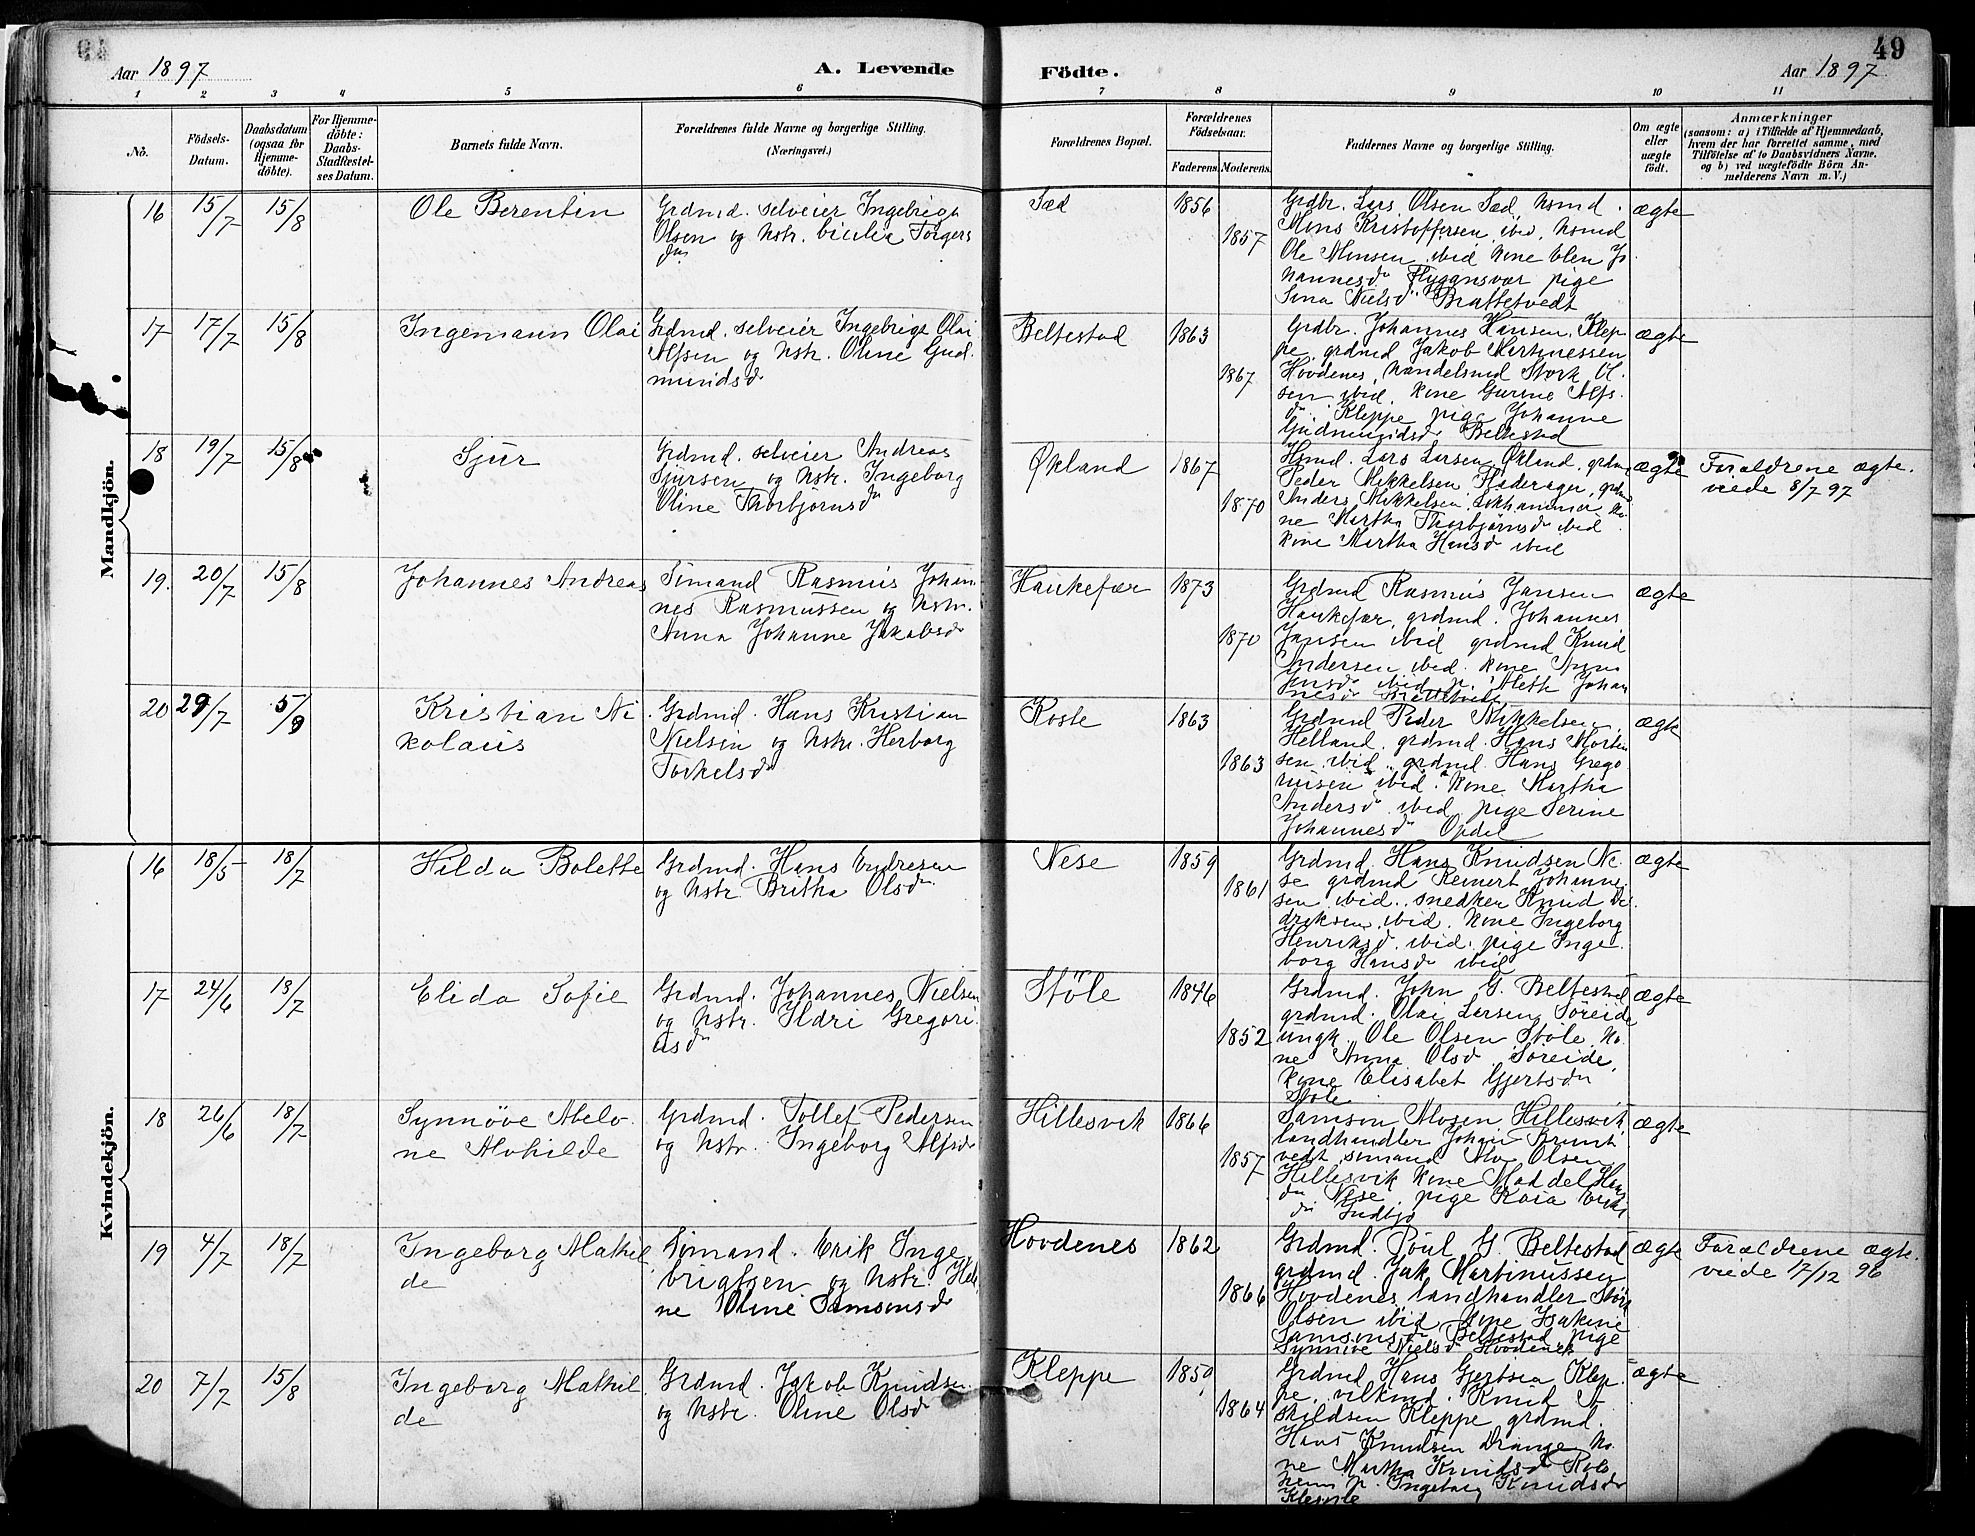 Aar 1897
A. Levende
Födte.
Aar 1897
49
1 2 3 4 5 6 7 8 9 10 11
No.
Födsels-
Datum.
Daabsdatum
(ogsaa for
Hjemme-
döbte).
For Hjemme-
döbte:
Daabs-
Stadfæstel-
ses Datum.
Barnets fulde Navn.
Forældrenes fulde Navne og borgerlige Stilling.
(Næringsvei.)
Forældrenes Bopæl.
Forældrenes
Födselsaar.
Faderens. Moderens.
Faddernes Navne og borgerlige Stilling.
Om ægte
eller
uægte
födt.
Anmærkninger
(saasom: a) i Tilfælde af Hjemmedaab,
hvem der har forrettet samme, med
Tilföielse af to Daabsvidners Navne,
og b) ved uægtefödte Börn An-
melderens Navn m. V.)
Mandkjön.
16 15/7 15/8
Ole Berentin
Grdmd. selveier Ingebrigt
Olsen og Hstr. Cicilia Torgers
dr
Sæd
1856
1857
Grdbr. Lars Olsen Sæd, Hsmd.
Mons Kristoffersen ibid, Hsmd
Ole Monsen ibid Kone Elen Jo
hannesdr Flyggnsvær pige
Sina Nielsdr Brattetvedt
ægte
17 17/7 15/8
Ingemann Olai
Grdmd. selveier Ingebrigt Olai
Alfsen og Hstr. Oline Gud
mundsdr
Beltestad
1863
1867
Grdbr. Johannes Hansen Klep
pe, grdmd Jakob Martinessen
Hovdenes, handelsmd Stork Ol
sen ibid. Kone Gurine Alfs
dr. Kleppe pige Johanne
Gudmundsdr Beltestad
ægte
18 19/7 15/8
Sjur
Grdmd. selveier Andreas
Sjursen og Hstr. Ingeborg
Oline Thorbjørnsdr
Økland
1867
1870
Hsmd. Lars Larsen Økland, grdm
Peder Mikkelsen Haderager, grdmd
Anders Mikkelsen
ne Martha Thorbjørnsdr ibid
Kone Martha Hansdr ibid
ægte
Forældrene ægte.
viede 8/7 97
19. 20/7 15/8
Johannes Andreas
Sømand Rasmus Johan
nes Rasmussen og Hstr.
Anna Johanne Jakobsdr
Haukefær
1873
1870
Grdmd Rasmus Jansen
Haukefær, grdmd. Johannes
Jansen ibid grdmd Knud
Andersen ibid. Kone Anna
Jensdr ibid p. Aleth Johan
nesdr
ægte
20 29/7 5/9
Kristian Ni
kolaus
Grdmd. Hans Kristian
Nielsen og Hstr. Herborg
Torkelsdr
Koste
1863
1863
Grdmd Peder Mikkelsen
Helland, grdmd. Hans Morten
sen ibid, grdmd Hans Grego
riusen ibid. Kone Martha
Andersdr ibid pige Serine
Johannesdr Opdal
ægte
Kvindekjön.
16 18/5 18/7
Hilda Bolette
Grdmd. Hans Endresen
og Hstr Britha Olsdr
Nese
1859
1861
Grdmd. Hans Knudsen Ne
se grdmd Reinert Johanne
sen ibid. snedker Knud Di
driksen ibid. Kone Ingeborg
Henriksdr ibid. pige Inge
borg Hansdr ibid
ægte
17 24/6 18/7
Elida Sofie
Grdmd. Johannes Nielsen
og Hstr. Ildri Gregori
usdr
Støle
1846
1852
Grdmd. John G. Beltestad
grdmd. Olai Larsen Søreide
ungk. Ole Olsen Støle. Ko
ne Anna Olsdr Søreide,
Kone Elisabet Gjertsdr
Støle
ægte
18 26/6 18/7
Synnöve Alelo
ne Mohilde
Grdmd. Tollef Pedersen
og Hstr. Ingeborg Alfsdr
Hillesvik
1866
1857
Samson Mosen Hillesvik
landhandler Johan Brunt
vedt sömand Olsen
Hillesvik Kone Maddel Hans
dr Nese, pige Kaia Eriks
dr Indbjo
ægte
19 4/7 18/7
Ingeborg Mathil
de
Sömand. Erik Inge
brigtsen og Hstr. Hele
ne Oline Samsonsdr
Hovdenes
1862
1866
Grdmd. Poul G. Beltestad
grdmd. Jak Martinussen
Hovdenes landhandler Störk
Olsen ibid, Kone Isakine
Samsonsdr Beltestad pige
Synnive Nielsdr Hovdenes
ægte
Forældrene ægte.
viede 17/12 96
20 7/7 15/8
Ingeborg Mathil
de
Grdmd. Jakob Knudsen
og Hstr. Oline Olsdr
Kleppe
1859
1864
Grdmd Hans Gjertsen Klep
pe, vilkmd. Knud A
skildsen Kleppe grdmd.
Hans Knudsen Drange Ko
ne Martha Knudsdr Rol
heim p. Ingeborg Knudsdr
Kleppe
ægte